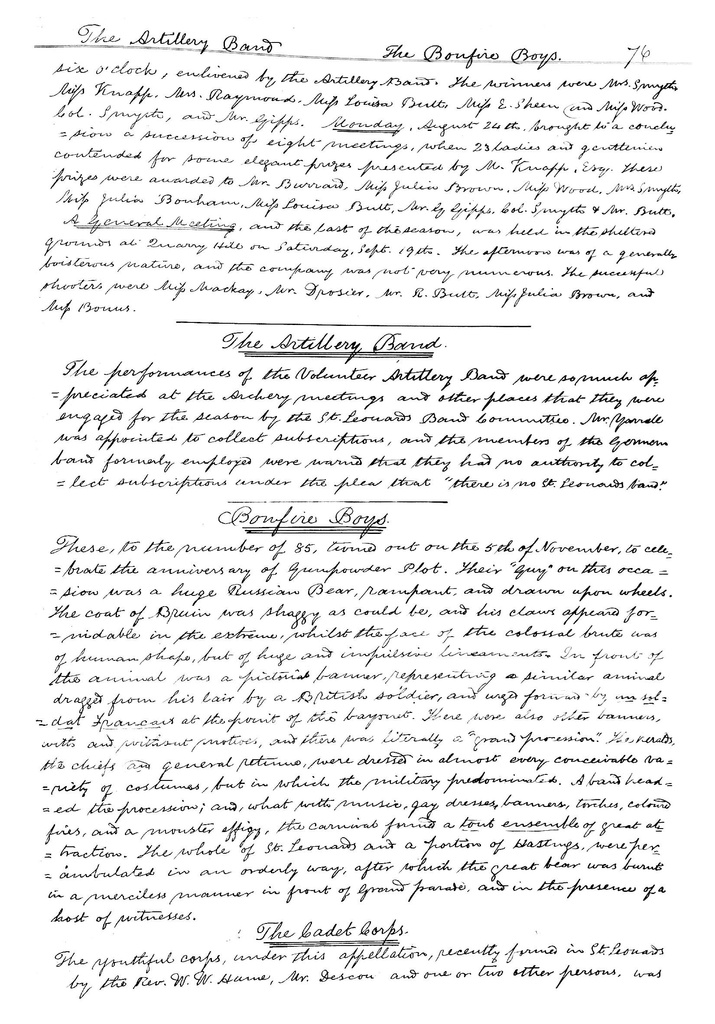 The Artillery Band The Bonfire Boys. 76
six o'clock, enlivened by the Artillery Band. The winners were Mrs. Smyth,
Miss Knapp, Mrs. Raymond, Miss Louisa Butt, Miss E. Skeen and Miss Wood.
Col. Smyth, and Mr. Gipps. Monday, August 24th. brought to a conclu
=sion a succession of eight meetings, when 23 ladies and gentlemen
contended for some elegant prizes presented by M. Knapp, Esq. These
prizes were awarded to Mr. Burrard, Miss Julia Brown, Miss Wood, Mrs Smyth,
Miss Julia Bonham, Miss Louisa Butt, Mr. G. Gipps, Col. Smyth & Mr. Butt.
A General Meeting, and the last of the season, was held in the sheltered
grounds at Quarry Hill on Saturday, Sept. 19th. The afternoon was of a generally
boisterous nature, and the company was not very numerous. The successful
shooters were Miss Mackay, Mr. Drosier, Mr. R. Butt, Miss Julia Brown, and
Miss Bonus.
The Artillery Band.
The performances of the Volunteer Artillery Band were so much ap-
=preciated at the Archery meetings and other places that they were
engaged for the season by the St. Leonards Band Committee. Mr. Yarroll
was appointed to collect subscriptions, and the members of the German
band formerly employed were warnd that they had no authority to col-
=lect subscriptions under the plea that "there is no St. Leonards band."
Bonfire Boys.
These, to the number of 85, turned out on the 5th of November, to cele-
=brate the anniversary of Gunpowder Plot. Their "Guy" on this occa-
=sion was a huge Russian Bear, rampant, and drawn upon wheels.
The coat of Bruin was shaggy as could be, and his claws appeard for-
=midable in the extreme, whilst the face of the colossal brute was
of human shape, but of huge and impulsive lineaments. In front of
the animal was a pictorial banner, representing a similar animal
dragged from his lair by a British soldier, and urged forward by un sol-
=dat Francais at the point of the bayonet. There were also other banners,
with and without mottoes, and there was literally a "grand procession". The heralds,
the chiefs and general retinue, were dressed in almost every conceivable va-
=riety of costumes, but in which the military predominated. A band head-
=ed the procession; and, what with music, gay dresses, banners, torches, colored
fires, and a monster effigy, the carnival formd a tout ensemble of great at-
=traction. The whole of St. Leonards and a portion of Hastings, were per-
=ambulated in an orderly way, after which the great bear was burnt
in a merciless manner in front of Grand parade, and in the presence of a
host of witnesses.
The Cadet Corps.
The youthful corps, under this appellation, recently formed in St. Leonards
by the Rev. W. W. Hume, Mr. Descou and one or two other persons, was